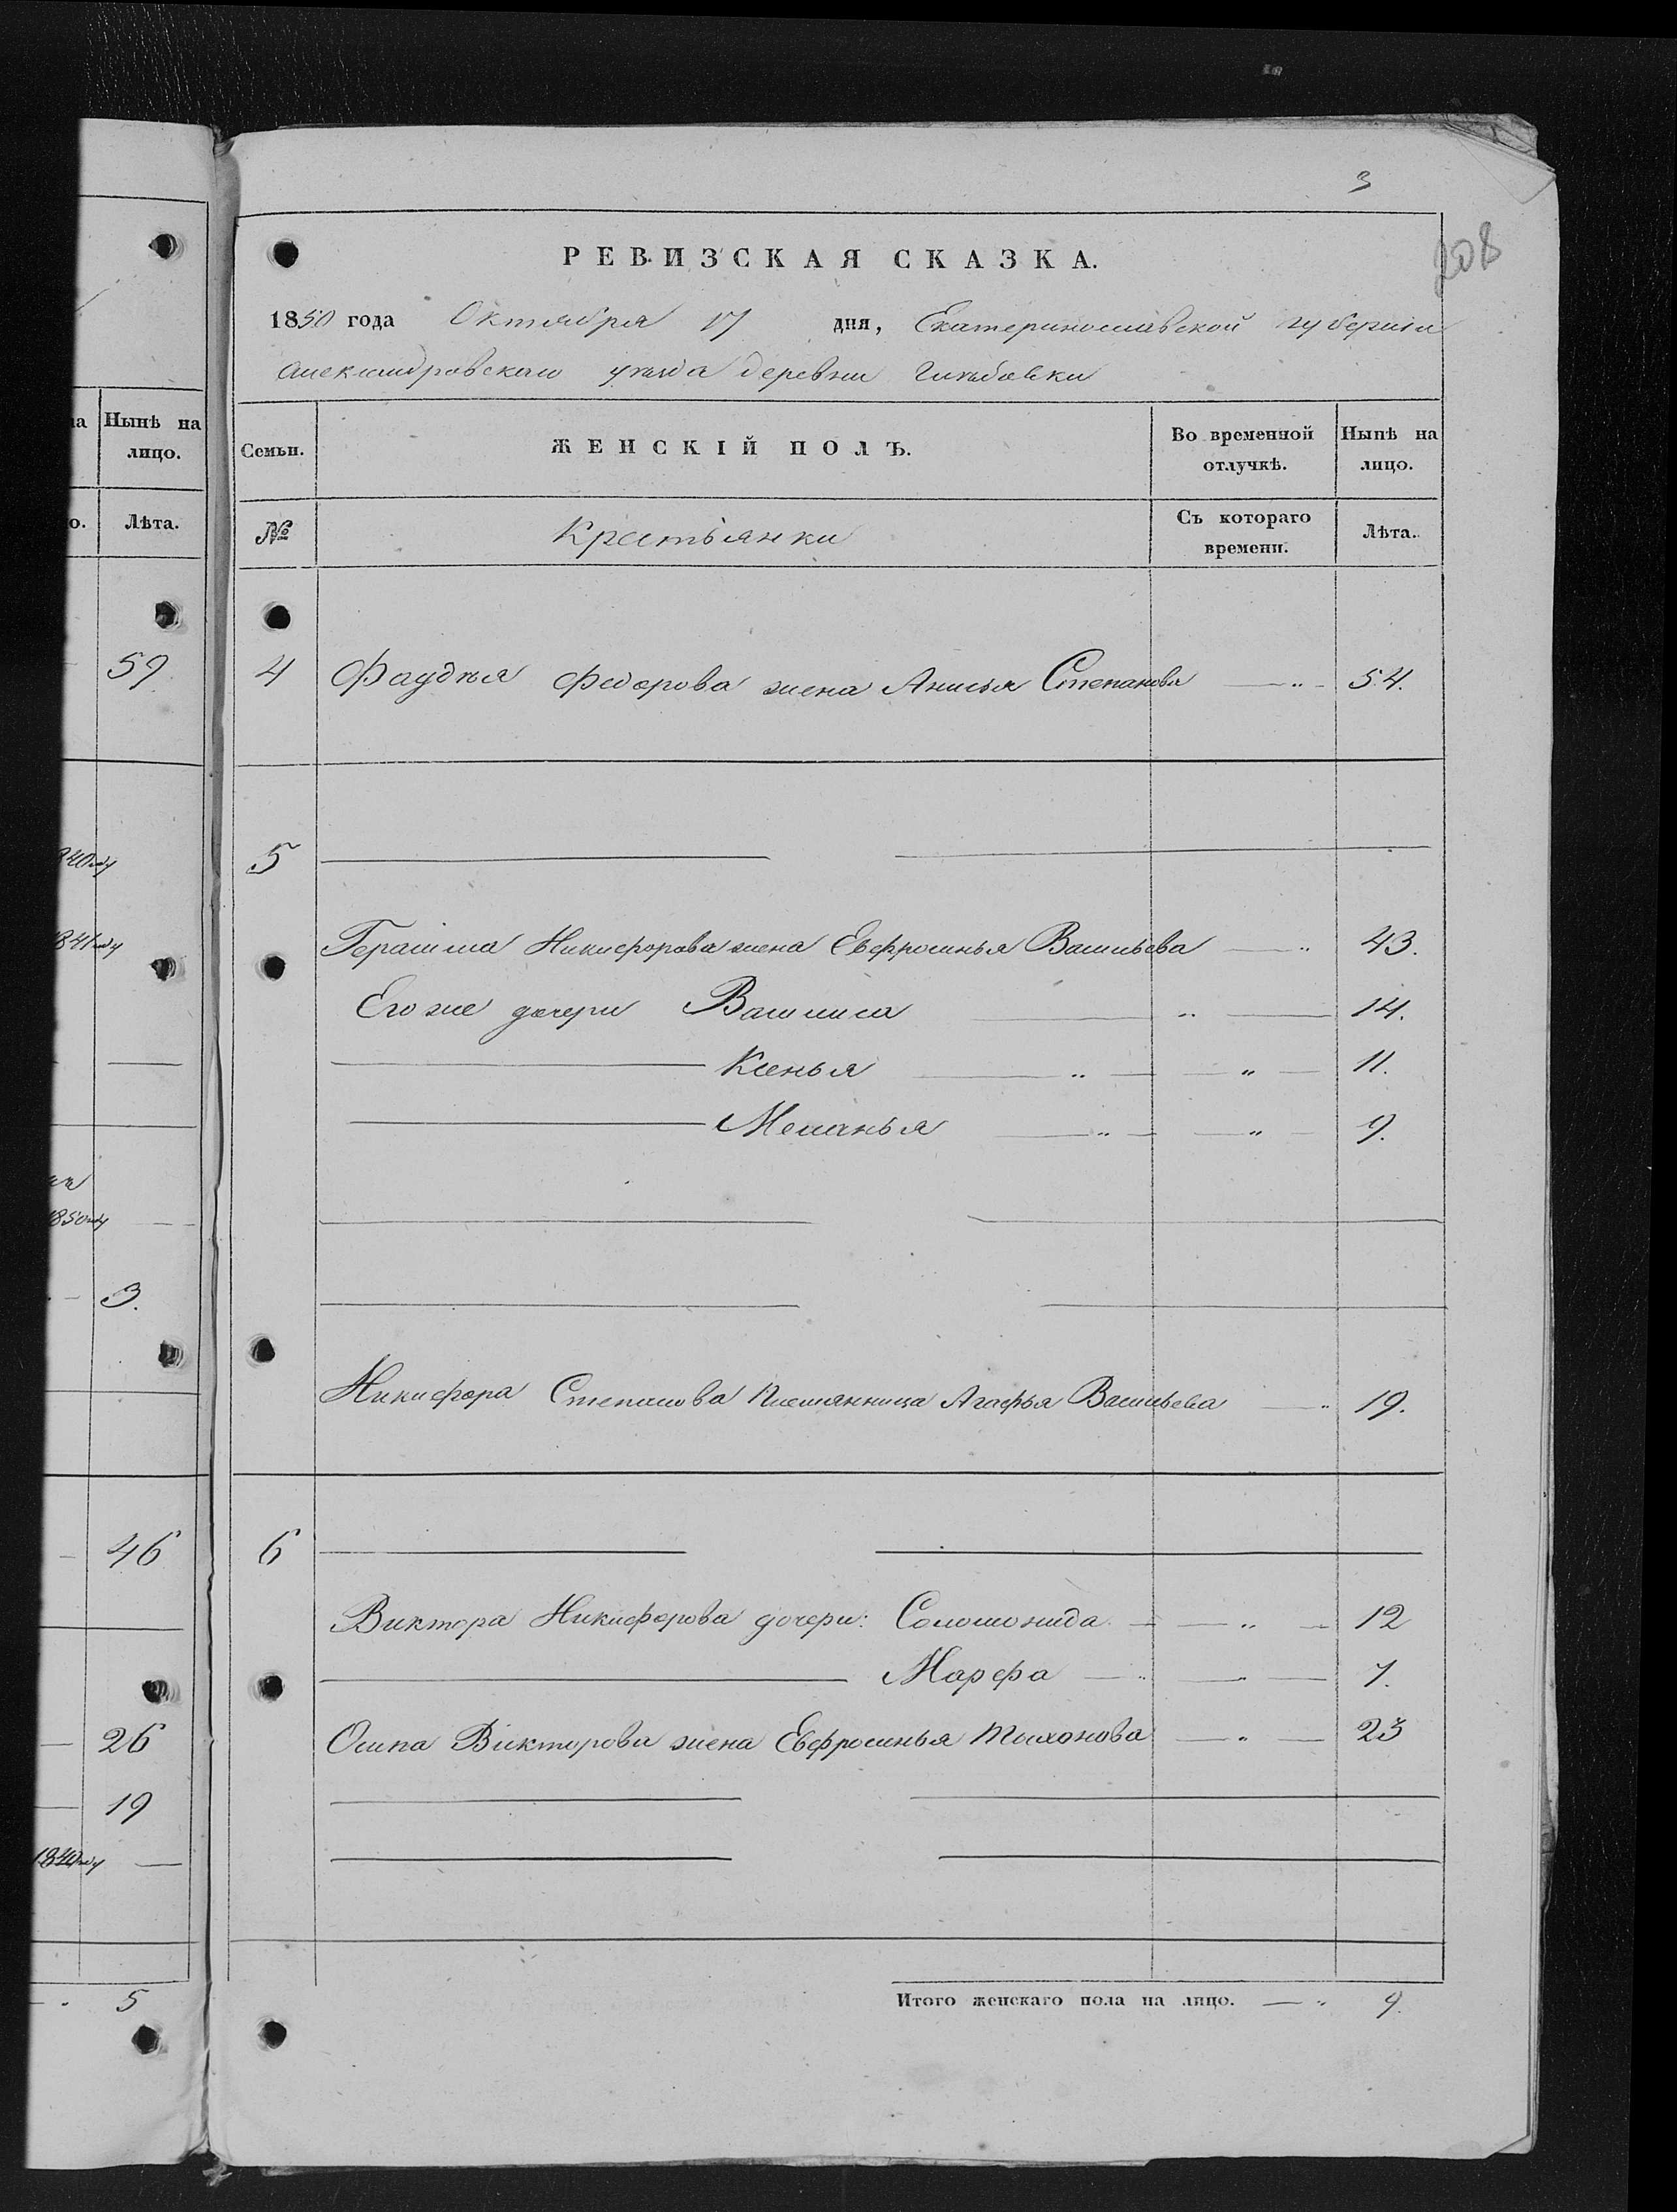 3
208
РЕВИЗСКАЯ СКАЗКА.
1850 года Октября 17 дня, Екатеринославской губернии
Александровскаго уезда деревни
Ныне на лицо.
Лѣта.
Семьи. ЖЕНСКІЙ ПОЛЪ. Во временной отлучкѣ. Нынѣ на лицо.
№ Крестьянки Съ котораго времени. Лѣта.
59
4 Федорова жена Анисья Степанова — " — 54.
5
Герасима Никифорова жена Евфросинья Васильева — " 43.
Его же дочери Василиса — " — 14.
Ксенья — " — — " — 11.
Меланья — " — — " — 9.
1850му
3.
Никифора Степанова племянница Агафья Васильева — " 19.
46
6
Виктора Никифорова дочери: Соломонида — — " — 12
Марфа — " — " — 7.
26
Осипа Викторова жена Евфросинья Тихонова — " — 23
19
5
Итого женскаго пола на лицо. — " 9.